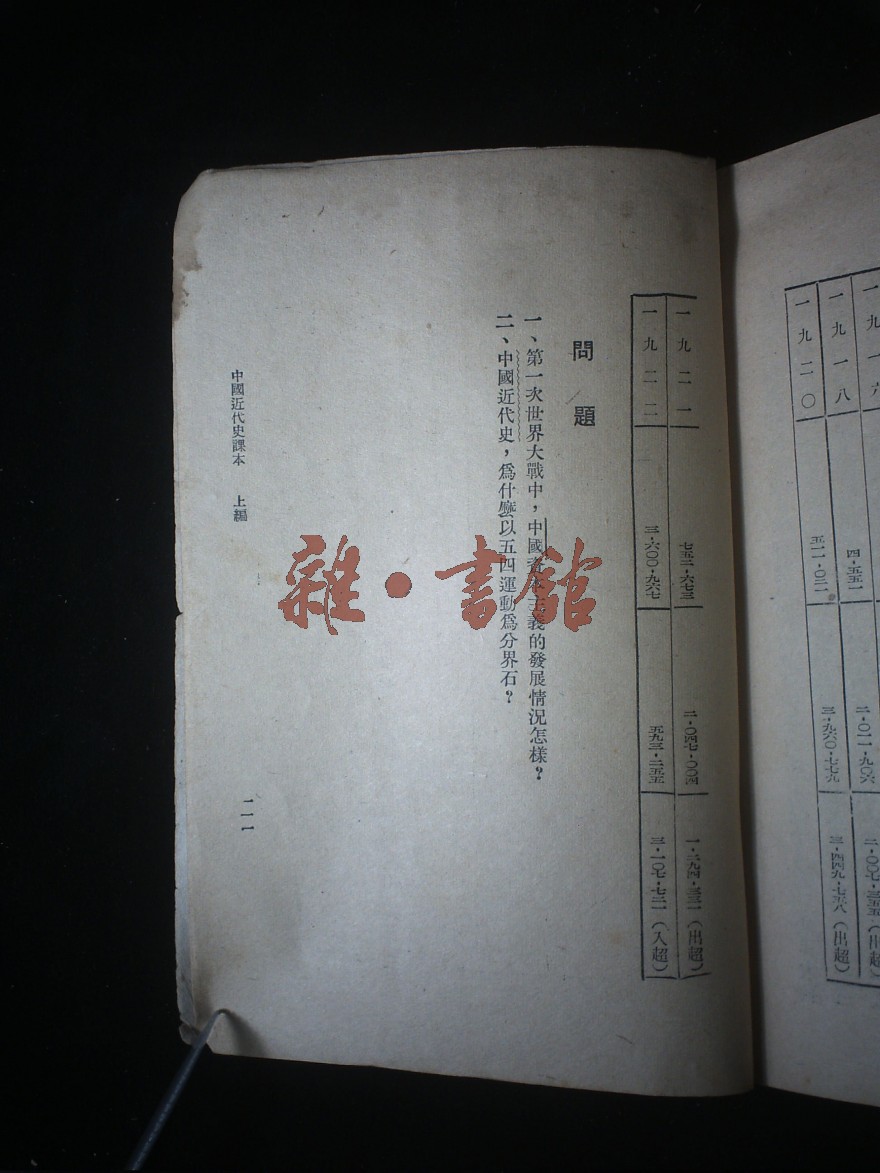 一九一六
一九一八 四·五五一 二·〇一一·九〇六 二·〇〇七·三五五(出超)
一九二〇 五一一·〇二一 三·九六〇·七七九 三·四四九·七五八(出超)
一九二一 七五二·六七三 二·〇四七·〇〇四 一·二九四·三三一(出超)
一九二二 三·六〇〇·九六七 五九三·二五五 三·一〇七·七二一(入超)
問題
一、第一次世界大戰中，中國資本主義的發展情況怎樣？
二、中國近代史，爲什麼以五四運動爲分界石？
中國近代史課本 上編
二一一
雜·書館